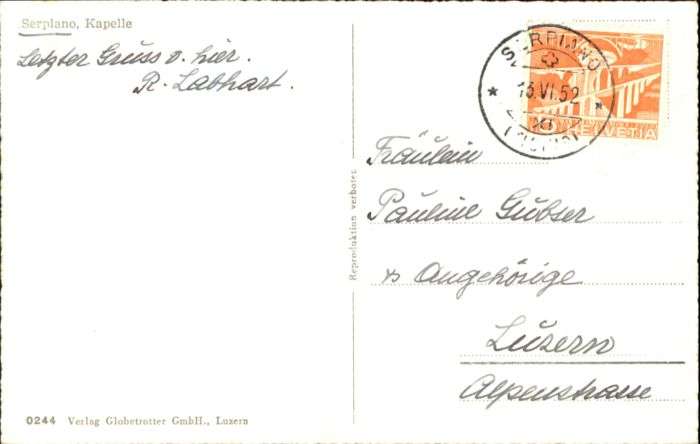 Serpiano, Kapelle
Letzter Gruss v. hier.
R. Labhart.
SERPIANO
13.VI.52
HELVETIA
Reproduktion verboten
Fräulein
Pauline Gubser
& Angehörige
Luzern
Alpenstrasse
0244 Verlag Globetrotter GmbH., Luzern